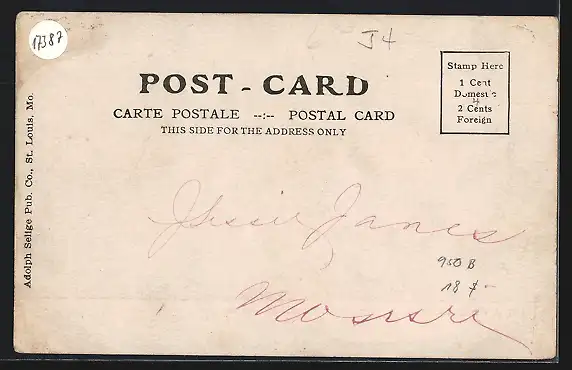 17387
J4
POST-CARD
CARTE POSTALE --:-- POSTAL CARD
THIS SIDE FOR THE ADDRESS ONLY
Stamp Here
1 Cent
Domestic
2 Cents
Foreign
Adolph Selige Pub. Co., St. Louis, Mo.
Jessie James
950 B
18 $-